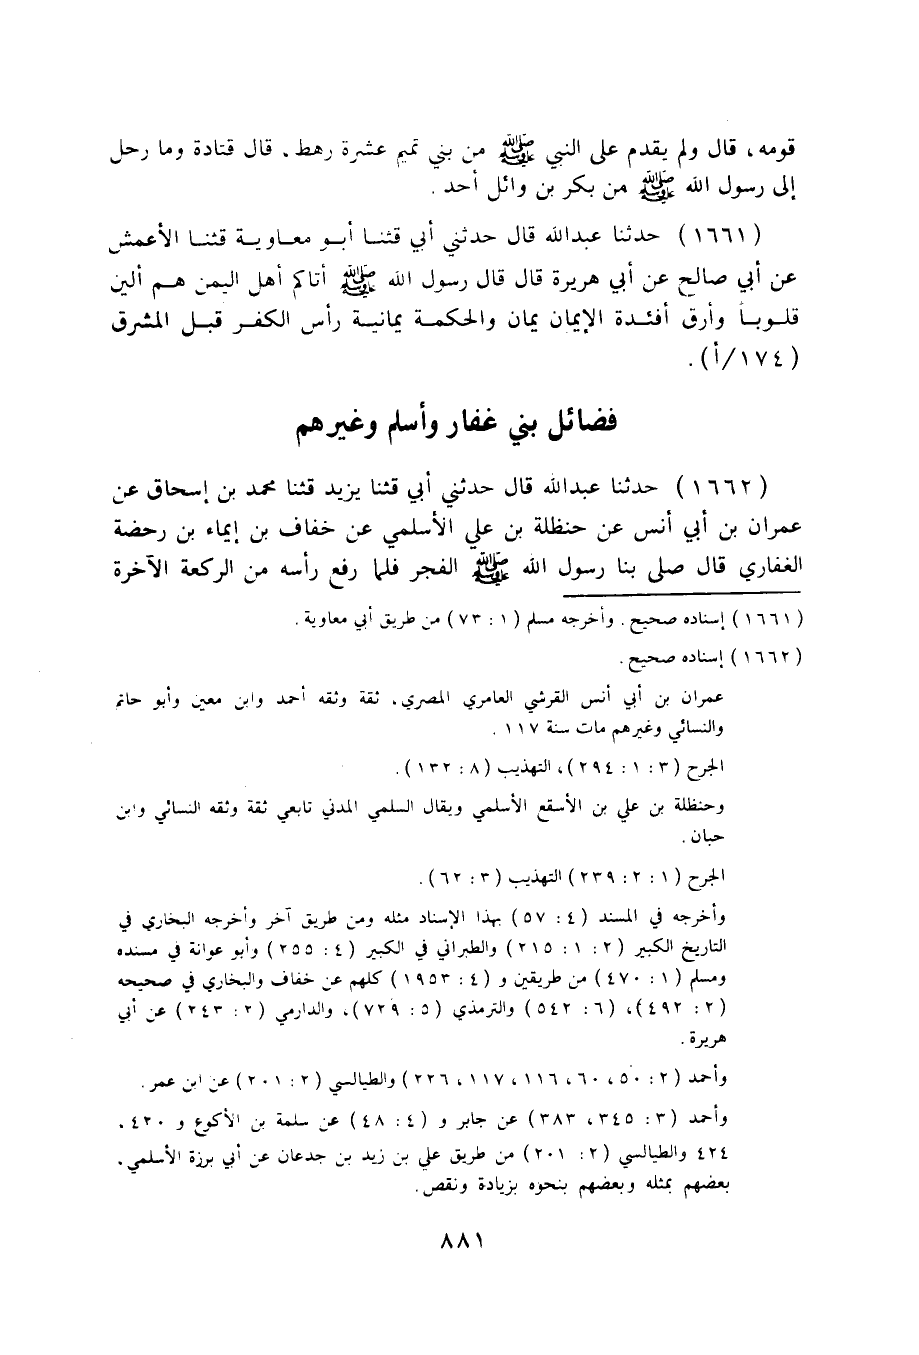 قومه، قال ولم يقدم على النبي ﷺ من بني تميم عشرة رهط. قال قتادة وما رحل
إلى رسول الله ﷺ من بكر بن وائل أحد.
(١٦٦١) حدثنا عبدالله قال حدثني أبي قثنا أبو معاوية قثنا الأعمش
عن أبي صالح عن أبي هريرة قال قال رسول الله ﷺ أتاكم أهل اليمن هم ألين
قلوباً وأرق أفئدة الإيمان يمان والحكمة يمانية رأس الكفر قبل المشرق
(١٧٤/أ).
فضائل بني غفار وأسلم وغيرهم
(١٦٦٢) حدثنا عبدالله قال حدثني أبي قثنا يزيد قثنا محمد بن إسحاق عن
عمران بن أبي أنس عن حنظلة بن علي الأسلمي عن خفاف بن إيماء بن رحضة
الغفاري قال صلى بنا رسول الله ﷺ الفجر فلما رفع رأسه من الركعة الآخرة
(١٦٦١) إسناده صحيح. وأخرجه مسلم (١: ٧٣) من طريق أبي معاوية.
(١٦٦٢) إسناده صحيح.
عمران بن أبي أنس القرشي العامري المصري، ثقة وثقه أحمد وابن معين وأبو حاتم
والنسائي وغيرهم مات سنة ١١٧.
الجرح (٣: ١: ٢٩٤)، التهذيب (٨: ١٣٢).
وحنظلة بن علي بن الأسقع الأسلمي ويقال السلمي المدني تابعي ثقة وثقه النسائي وابن
حبان.
الجرح (١: ٢: ٢٣٩) التهذيب (٣: ٦٢).
وأخرجه في المسند (٤: ٥٧) بهذا الإسناد مثله ومن طريق آخر وأخرجه البخاري في
التاريخ الكبير (٢: ١: ٢١٥) والطبراني في الكبير (٤: ٢٥٥) وأبو عوانة في مسنده
ومسلم (١: ٤٧٠) من طريقين و (٤: ١٩٥٣) كلهم عن خفاف والبخاري في صحيحه
(٢: ٤٩٢)، (٦: ٥٤٢) والترمذي (٥: ٧٢٩)، والدارمي (٢: ٢٤٣) عن أبي
هريرة.
وأحمد (٢: ٥٠، ٦٠، ١١٦، ١١٧، ٢٢٦) والطيالسي (٢: ٢٠١) عن ابن عمر.
وأحمد (٣: ٣٤٥، ٣٨٣) عن جابر و (٤: ٤٨) عن سلمة بن الأكوع و ٤٢٠،
٤٢٤ والطيالسي (٢: ٢٠١) من طريق علي بن زيد بن جدعان عن أبي برزة الأسلمي،
بعضهم بمثله وبعضهم بنحوه بزيادة ونقص.
٨٨١